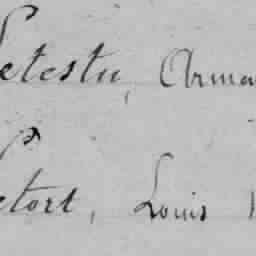 Letestu, Arma
etort, Louis